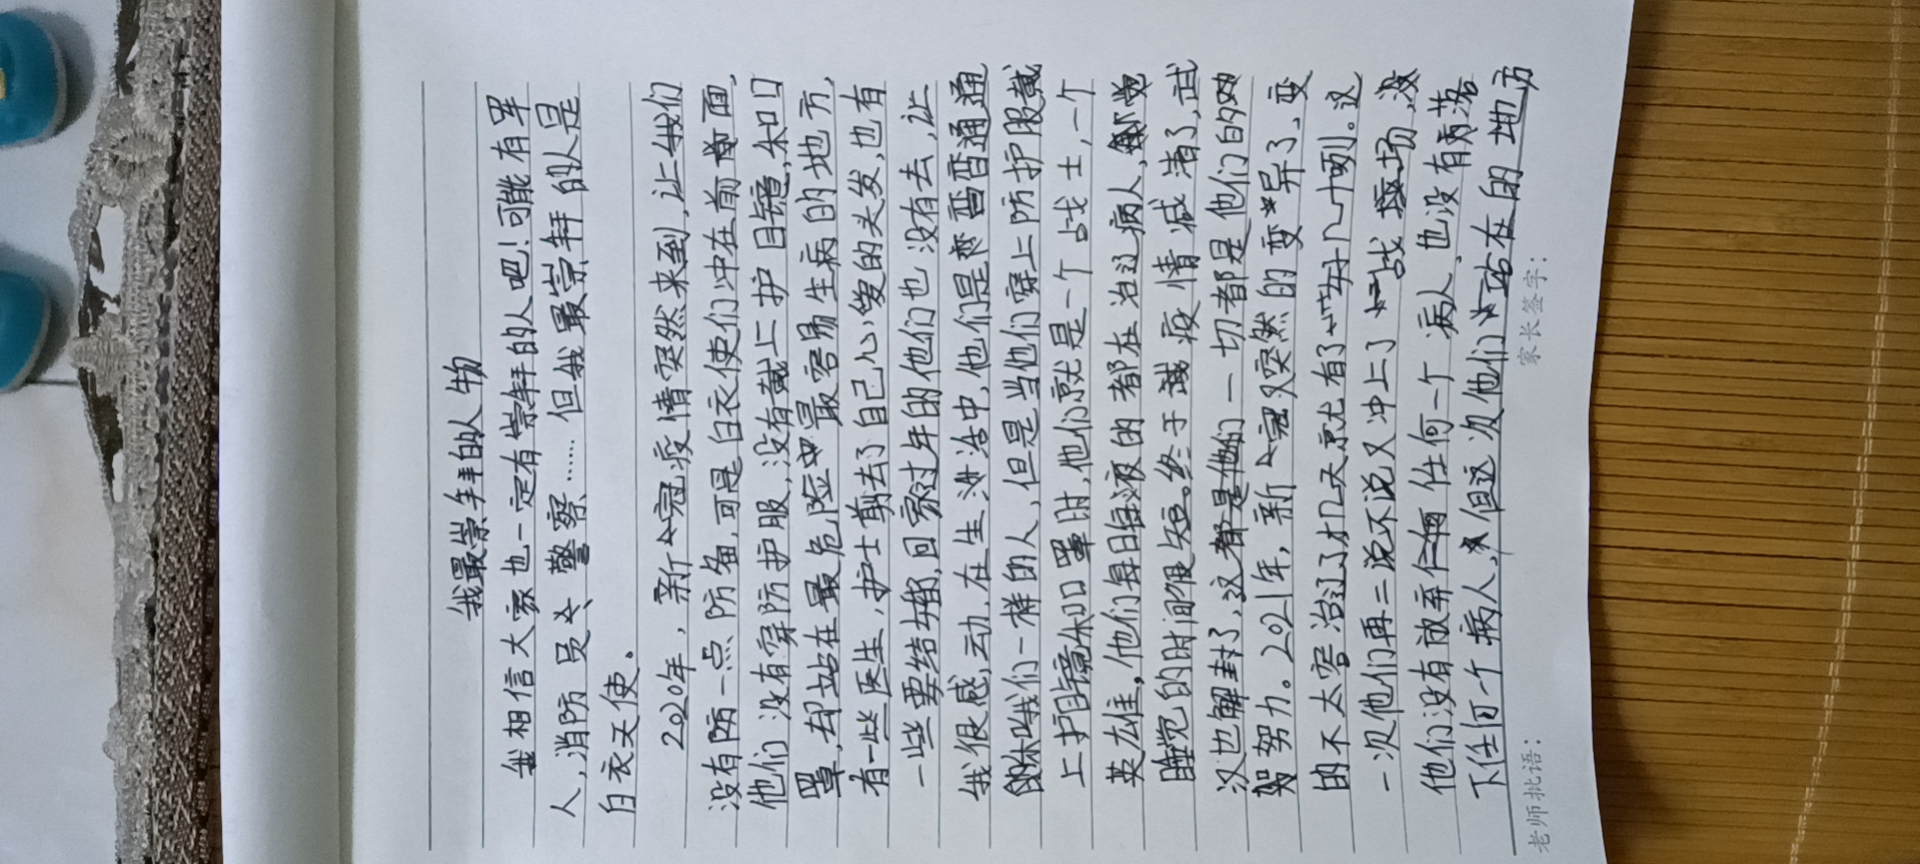 我最崇拜的人物
我相信大家也一定有崇拜的人吧！可能有军
人，消防员、警察……但我最崇拜的人是
白衣天使。
2020年，新冠疫情突然来到，让我们
没有防一点防备，可是白衣使们冲在前面，
他们没有穿防护服，没有戴上护目镜，和口
罩，却站在最危险最容易生病的地方，
有一些医生，护士剪去了自己心爱的头发，也有
一些要结婚，回家过年的他们也没有去，让
我很感动，在生活中，他们是普普通通
跟我们一样的人，但是当他们穿上防护服戴
上护目镜和口罩时，他们就是一个战士，一个
英雄，他们每日每夜的都在治辽病人，
睡觉的时间很短。终于疫情减清了，武
汉也解封了，这都是他们一切都是他们的
努力。2021年，新冠又突然的变异了，变
的不太容治辽了才几天就有了几十例。这
一次他们再二说不说又冲上了战场，没
他们没有放弃任何一个病人，也没有病落
下任何一个病人，但这次他们站在的地方
老师批语：
家长签字：